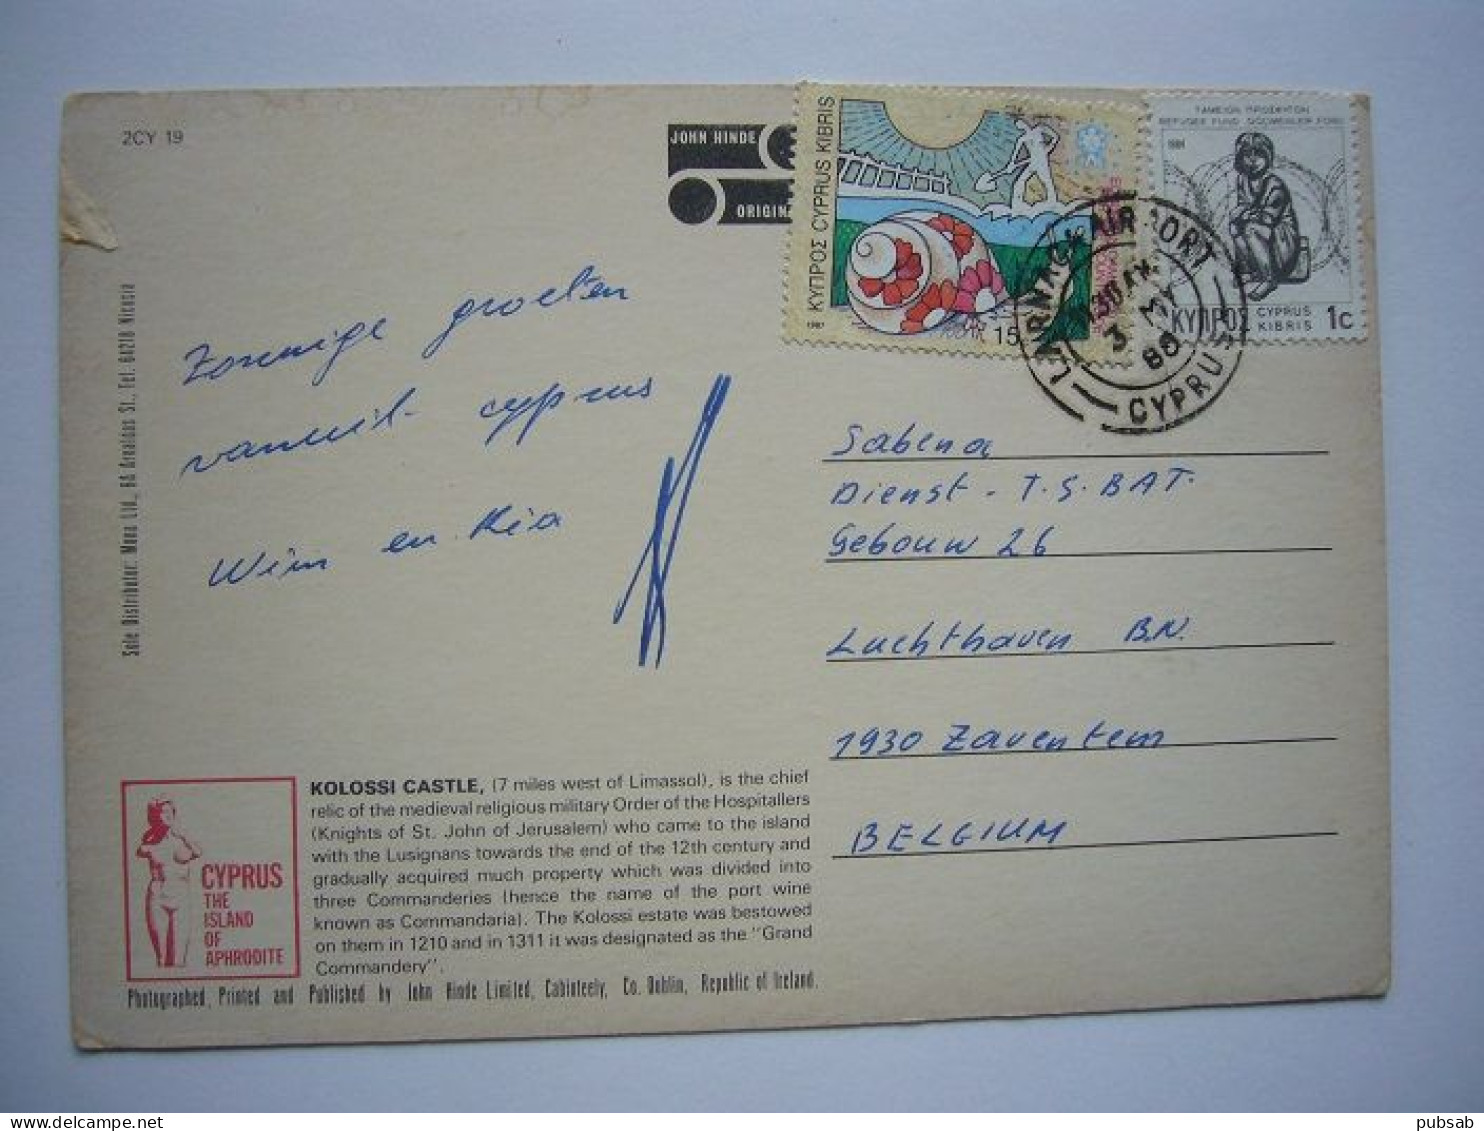 2CY 19
JOHN HINDE
ORIGINA
ΚΥΠΡΟΣ CYPRUS KIBRIS
1987
15
ΤΑΜΕΙΟΝ ΠΡΟΣΦΥΓΩΝ
REFUGEE FUND GÖÇMENLER FONU
1984
ΚΥΠΡΟΣ CYPRUS KIBRIS 1c
LARNACA AIRPORT
1130AM
3 MY
88
CYPRUS
Zonnige groeten
vanuit cyprus
Wim en Ria
Sabena
Dienst - T.S. BAT.
Gebouw 26
Luchthaven B.N.
1930 Zaventem
BELGIUM
Sole Distributor: Mona Ltd., 6A Arnaldas St., Tel. 64218 Nicosia
CYPRUS
THE
ISLAND
OF
APHRODITE
KOLOSSI CASTLE, (7 miles west of Limassol), is the chief
relic of the medieval religious military Order of the Hospitallers
(Knights of St. John of Jerusalem) who came to the island
with the Lusignans towards the end of the 12th century and
gradually acquired much property which was divided into
three Commanderies (hence the name of the port wine
known as Commandaria). The Kolossi estate was bestowed
on them in 1210 and in 1311 it was designated as the "Grand
Commandery".
Photographed, Printed and Published by John Hinde Limited, Cabinteely, Co. Dublin, Republic of Ireland.